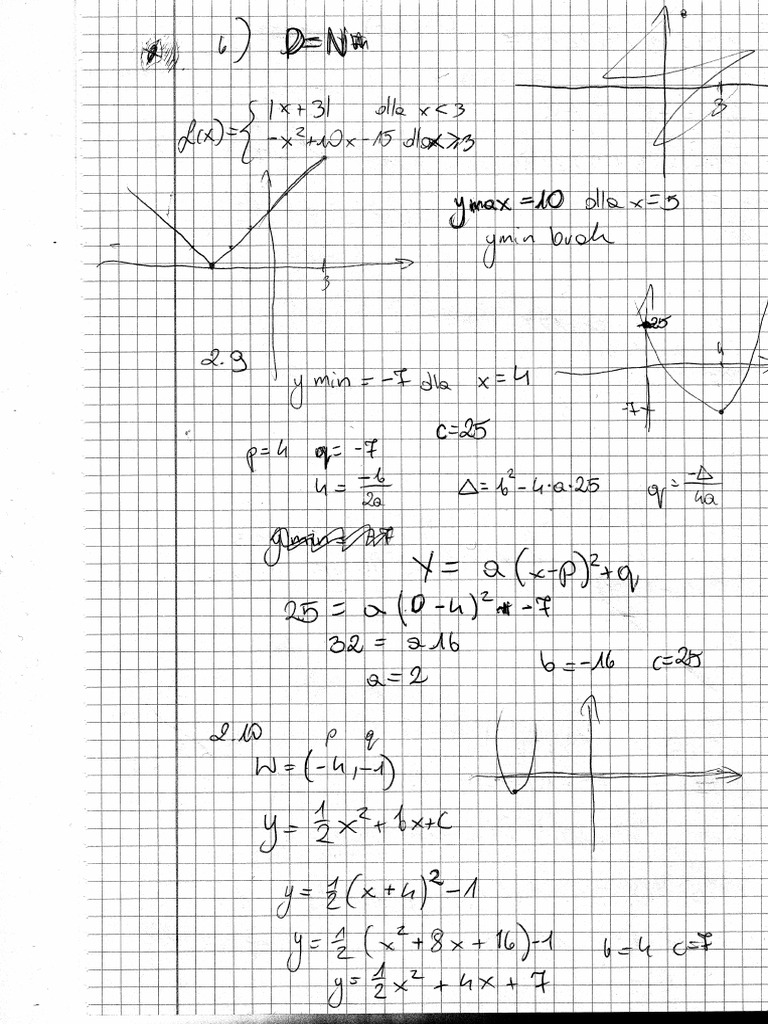 b) D=N
f(x)={ |x+3| dla x<3
-x²+10x-15 dla x⩾3
3
ymax=10 dla x=5
ymin brak
3
25
4
-7
2.9
y min = -7 dla x=4
c=25
p=4 q=-7
4=-b/2a Δ=b²-4·a·25 q=-Δ/4a
y = a(x-p)²+q
25 = a(0-4)² -7
32 = a16
a=2 b=-16 c=25
2.10
p q
W=(-4,-1)
y=1/2x²+bx+c
y=1/2(x+4)²-1
y=1/2(x²+8x+16)-1 b=4 c=7
y=1/2x²+4x+7